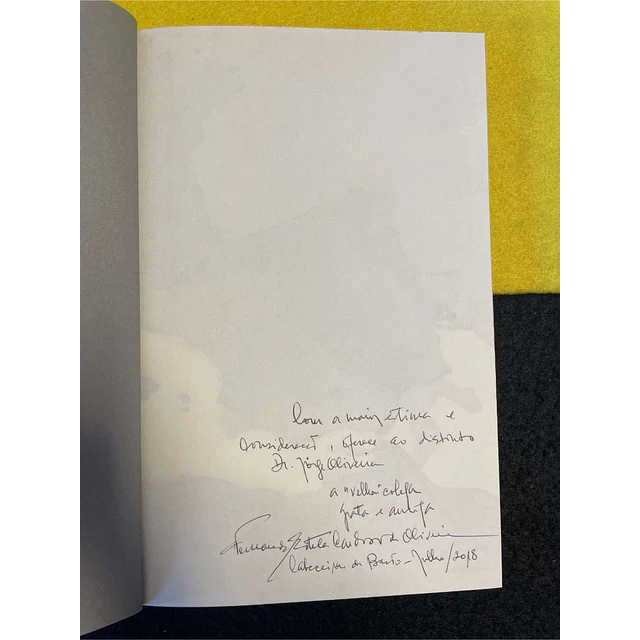 Com a maior estima e
consideração, oferece ao distinto
Dr. Jorge Oliveira
a "velha" colega
grata e amiga
Fernanda Estela Cardoso de Oliveira
Cabeceiras de Basto - Julho/2018